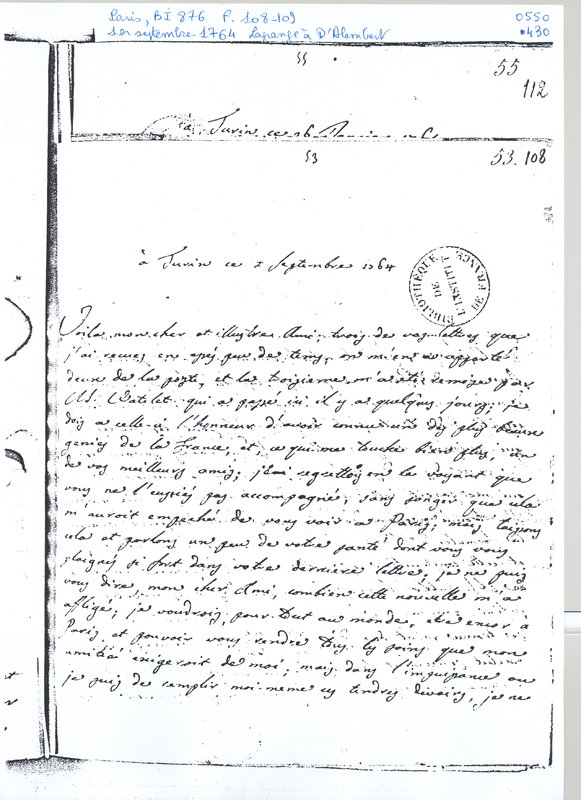 Paris, BI 876 F. 108-109
0550
1er septembre 1764 Lagrange à D'Alembert
0430
55
55
112
à Turin ce 26
53
53. 108
à Turin ce 1 Septembre 1764
BIBLIOTHÈQUE DE L'INSTITUT DE FRANCE
Voila, mon cher et illustre Ami, trois de vos lettres que
j'ai reçues en assés peu de tems; on m'en a apporté
deux de la poste, et la troisieme m'a été remise par
M. Watelet qui a passé ici il y a quelques jours; je
dois à celle-ci l'honneur d'avoir connu un des plus beaux
genies de la France, et, ce qui me touche bien plus, un
de vos meilleurs amis; j'ai regretté en le voyant que
vous ne l'eussiés pas accompagné, sans songer que cela
m'auroit empeché de vous voir à Paris; mais laissons
cela et parlons un peu de votre santé dont vous vous
plaignés si fort dans votre derniere lettre; je ne puis
vous dire, mon cher Ami, combien cette nouvelle m'a
affligé; je voudrois pour tout au monde, etre encor à
Paris, et pouvoir vous rendre tous les soins que mon
amitié exigeroit de moi; mais dans l'impuissance ou
je suis de remplir moi-meme ces tendres devoirs, je ne